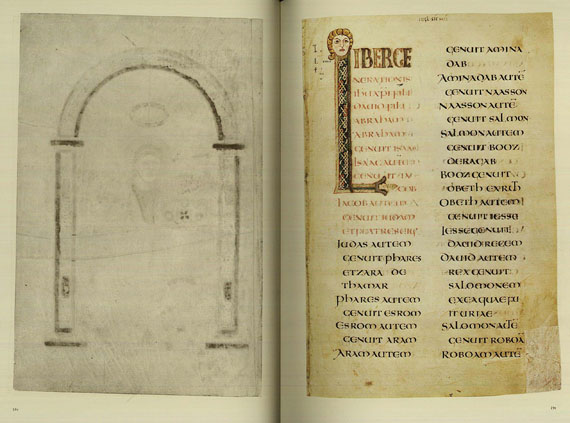 LIBER GE
NERATIONIS
IHU XPI FILII
DAVID FILII
ABRAHAM
ABRAHAM
GENUIT ISAAC
ISAAC AUTEM
GENUIT IA
COB
IACOB AUTEM
GENUIT IUDAM
ET FRATRES EIUS
IUDAS AUTEM
GENUIT PHARES
ET ZARA DE
THAMAR
PHARES AUTEM
GENUIT ESROM
ESROM AUTEM
GENUIT ARAM
ARAM AUTEM
GENUIT AMINA
DAB
AMINADAB AUTĒ
GENUIT NAASSON
NAASSON AUTĒ
GENUIT SALMON
SALMON AUTEM
GENUIT BOOZ
DE RACAB
BOOZ GENUIT
OBETH EX RUTH
OBETH AUTEM
GENUIT IESSE
IESSE GENUIT
DAVID REGEM
DAVID AUTEM
REX GENUIT
SALOMONEM
EX EA QUAE FU
IT URIAE
SALOMON AUTĒ
GENUIT ROBOĀ
ROBOAM AUTĒ